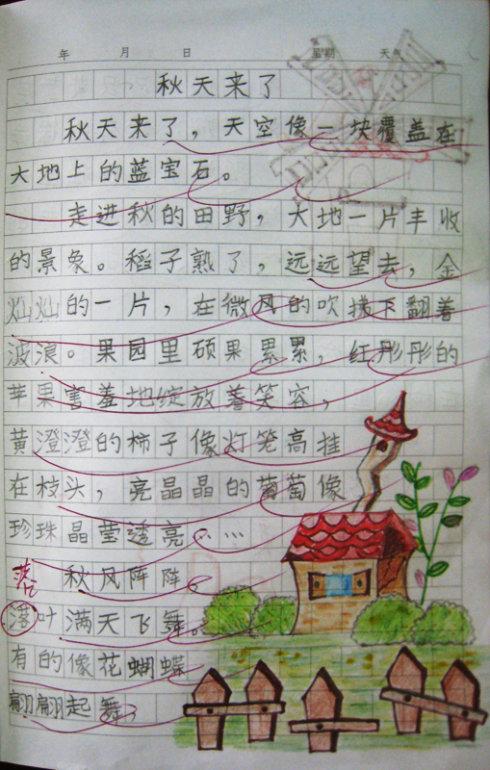 年 月 日 星期 天气
秋天来了
秋天来了，天空像一块覆盖在
大地上的蓝宝石。
走进秋的田野，大地一片丰收
的景象。稻子熟了，远远望去，金
灿灿的一片，在微风的吹拂下翻着
波浪。果园里硕果累累，红彤彤的
苹果害羞地绽放着笑容，
黄澄澄的柿子像灯笼高挂
在枝头，亮晶晶的葡萄像
珍珠晶莹透亮……
秋风阵阵，
落
落叶满天飞舞。
有的像花蝴蝶
翩翩起舞，